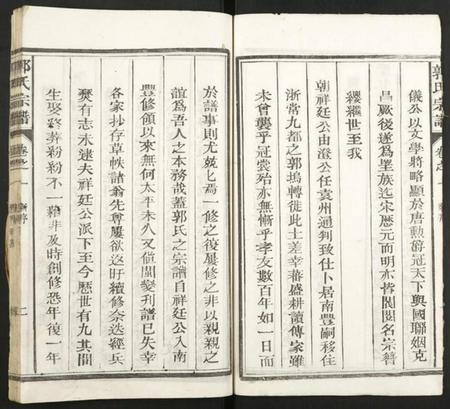 郭氏宗譜
卷之一
儀公以文學將略顯於唐勳爵冠天下與國聯姻克
昌厥後遂爲望族迄宋歷元而明亦皆閥閱名宗簪
纓繼世至我
朝祥廷公由澄公任袁州通判致仕卜居南豐嗣移住
浙常九都之郭塢轉徙此土差幸蕃盛耕讀傳家雖
未嘗襲乎冠裳殆亦無慚乎孝友數百年如一日而
於譜事則尤兢兢焉一修之復屢修之非以親親之
誼爲吾人之本務哉蓋郭氏之宗譜自祥廷公入南
豐修領以來無何太平未久又值閩變刋譜已失幸
各家抄存草帙諸翁先尊屢欲迄旴續修奈迭經兵
燹有志未逮夫祥廷公派下至今歷世有九其間
生娶終葬紛紛不一藉非及時創修恐年復一年
郭氏宗譜
卷之一
序
二